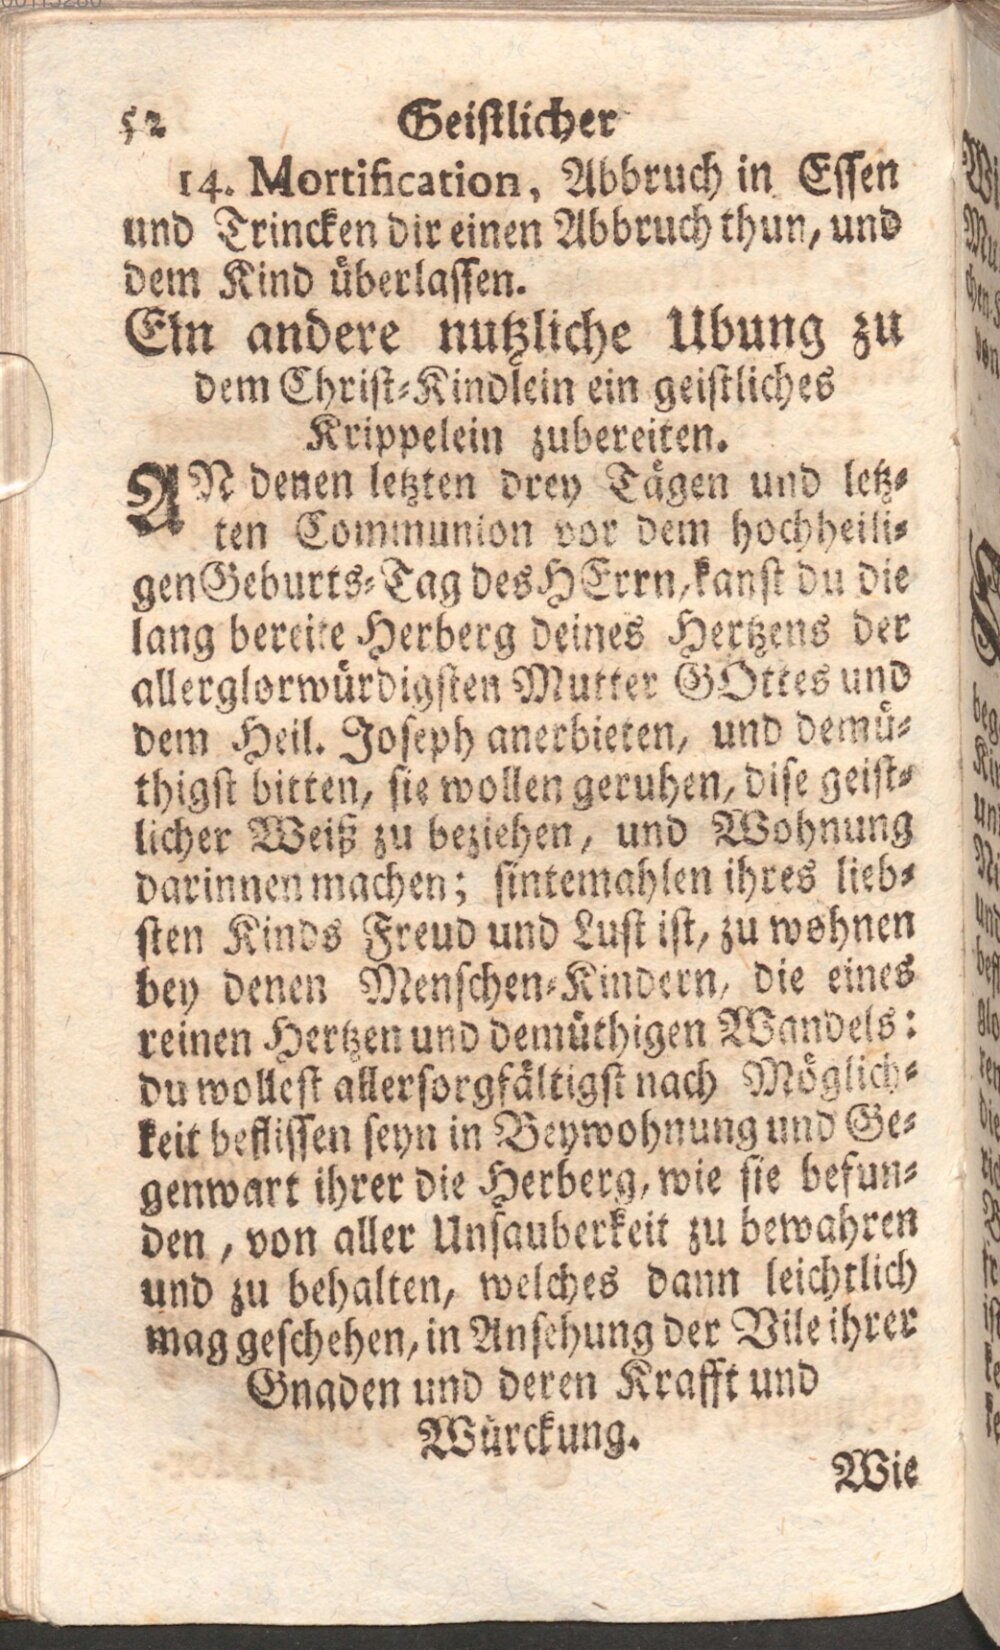 52 Geistlicher
14. Mortification, Abbruch in Essen
und Trincken dir einen Abbruch thun, und
dem Kind überlassen.
Ein andere nutzliche Ubung zu
dem Christ-Kindlein ein geistliches
Krippelein zubereiten.
AN denen letzten drey Tägen und letz-
ten Communion vor dem hochheili-
gen Geburts-Tag des HErrn, kanst du die
lang bereite Herberg deines Hertzens der
allerglorwürdigsten Mutter GOttes und
dem Heil. Joseph anerbieten, und demü-
thigst bitten, sie wollen geruhen, dise geist-
licher Weiß zu beziehen, und Wohnung
darinnen machen; sintemahlen ihres lieb-
sten Kinds Freud und Lust ist, zu wohnen
bey denen Menschen-Kindern, die eines
reinen Hertzen und demüthigen Wandels:
du wollest allersorgfältigst nach Möglich-
keit beflissen seyn in Beywohnung und Ge-
genwart ihrer die Herberg, wie sie befun-
den, von aller Unsauberkeit zu bewahren
und zu behalten, welches dann leichtlich
mag geschehen, in Ansehung der Vile ihrer
Gnaden und deren Krafft und
Würckung.
Wie